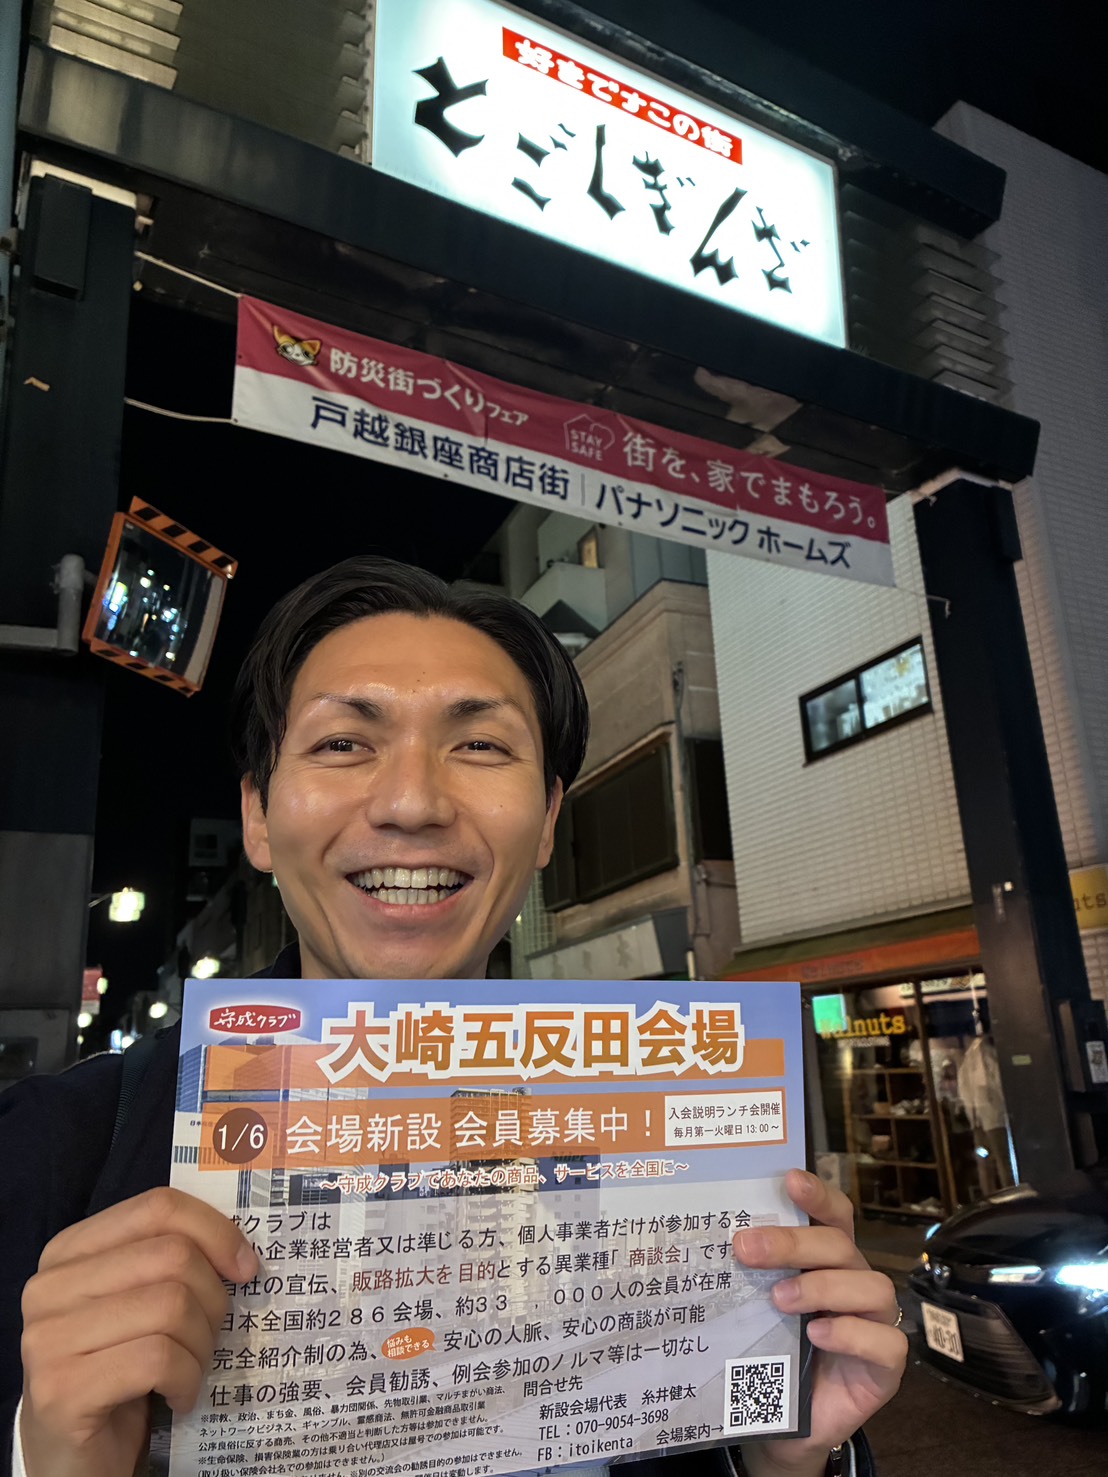 好きですこの街
とごしぎんざ
防災街づくりフェア
STAY SAFE
街を、家でまもろう。
戸越銀座商店街 | パナソニック ホームズ
守成クラブ
大崎五反田会場
1/6
会場新設 会員募集中！
入会説明ランチ会開催
毎月第一火曜日13:00～
～守成クラブであなたの商品、サービスを全国に～
成クラブは
小企業経営者又は準じる方、個人事業者だけが参加する会
自社の宣伝、販路拡大を目的とする異業種「商談会」です
日本全国約２８６会場、約３３，０００人の会員が在席
完全紹介制の為、
悩みも
相談できる
安心の人脈、安心の商談が可能
仕事の強要、会員勧誘、例会参加のノルマ等は一切なし
※宗教、政治、まち金、風俗、暴力団関係、先物取引業、マルチまがい商法、
ネットワークビジネス、ギャンブル、霊感商法、無許可金融商品取引業
公序良俗に反する商売、その他不適当と判断した方等は参加できません。
※生命保険、損害保険業の方は乗り合い代理店又は屋号での参加は可能です。
（取り扱い保険会社名での参加はできません。）
※別の交流会の勧誘目的の参加はできません。
開催日は変動します。
問合せ先
新設会場代表 糸井健太
TEL：070-9054-3698
FB：itoikenta
会場案内→